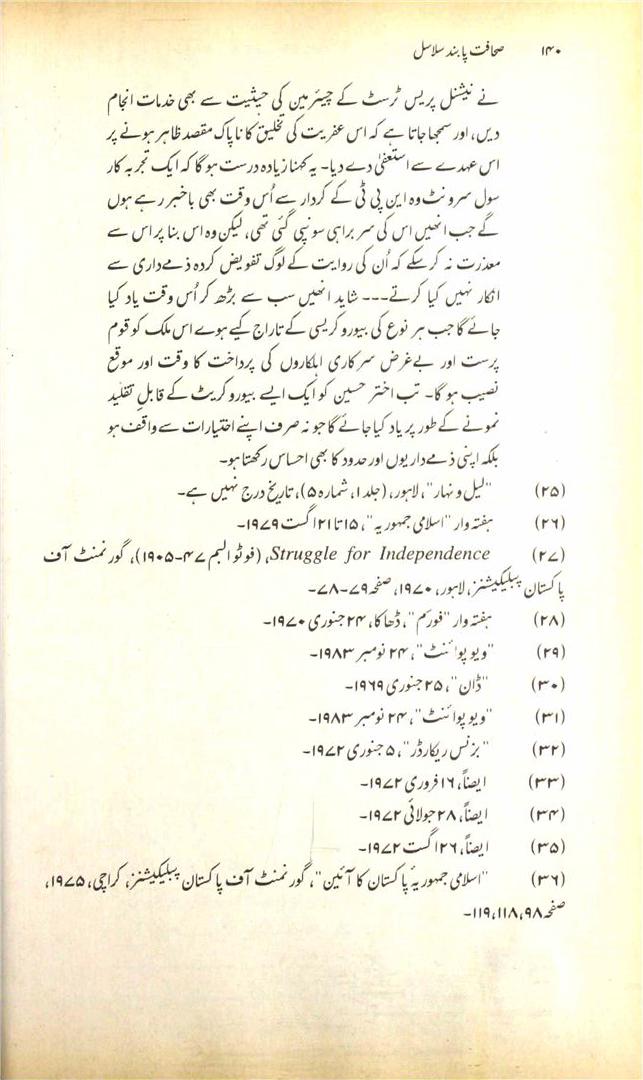 ۱۴۰ صحافت پابند سلاسل
نے نیشنل پریس ٹرسٹ کے چیئرمین کی حیثیت سے بھی خدمات انجام
دیں، اور سمجھا جاتا ہے کہ اس عفریت کی تخلیق کا ناپاک مقصد ظاہر ہونے پر
اس عہدے سے استعفیٰ دے دیا۔ یہ کہنا زیادہ درست ہو گا کہ ایک تجربہ کار
سول سرونٹ وہ این پی ٹی کے کردار سے اُس وقت بھی باخبر رہے ہوں
گے جب انھیں اس کی سربراہی سونپی گئی تھی، لیکن وہ اس بنا پر اس سے
معذرت نہ کر سکے کہ اُن کی روایت کے لوگ تفویض کردہ ذمے داری سے
انکار نہیں کیا کرتے۔۔۔ شاید انھیں سب سے بڑھ کر اُس وقت یاد کیا
جائے گا جب ہر نوع کی بیوروکریسی کے تاراج کیے ہوے اس ملک کو قوم
پرست اور بے غرض سرکاری اہلکاروں کی پرداخت کا وقت اور موقع
نصیب ہو گا۔ تب اختر حسین کو ایک ایسے بیوروکریٹ کے قابلِ تقلید
نمونے کے طور پر یاد کیا جائے گا جو نہ صرف اپنے اختیارات سے واقف ہو
بلکہ اپنی ذمے داریوں اور حدود کا بھی احساس رکھتا ہو۔
(۲۵) "لیل و نہار"، لاہور، (جلد ۱، شمارہ ۵)، تاریخ درج نہیں ہے۔
(۲۶) ہفتہ وار "اسلامی جمہوریہ"، ۱۵ تا ۲۱ اگست ۱۹۷۹۔
(۲۷) Struggle for Independence، (فوٹو البم ۴۷-۱۹۰۵)، گورنمنٹ آف
پاکستان پبلیکیشنز، لاہور، ۱۹۷۰، صفحہ ۷۹-۷۸۔
(۲۸) ہفتہ وار "فورم"، ڈھاکا، ۲۴ جنوری ۱۹۷۰۔
(۲۹) "ویو پوائنٹ"، ۲۴ نومبر ۱۹۸۳۔
(۳۰) "ڈان"، ۲۵ جنوری ۱۹۶۹۔
(۳۱) "ویو پوائنٹ"، ۲۴ نومبر ۱۹۸۳۔
(۳۲) "بزنس ریکارڈر"، ۵ جنوری ۱۹۷۲۔
(۳۳) ایضاً، ۱۶ فروری ۱۹۷۲۔
(۳۴) ایضاً، ۲۸ جولائی ۱۹۷۲۔
(۳۵) ایضاً، ۲۶ اگست ۱۹۷۲۔
(۳۶) "اسلامی جمہوریۂ پاکستان کا آئین"، گورنمنٹ آف پاکستان پبلیکیشنز، کراچی، ۱۹۷۵،
صفحہ ۹۸، ۱۱۸، ۱۱۹۔